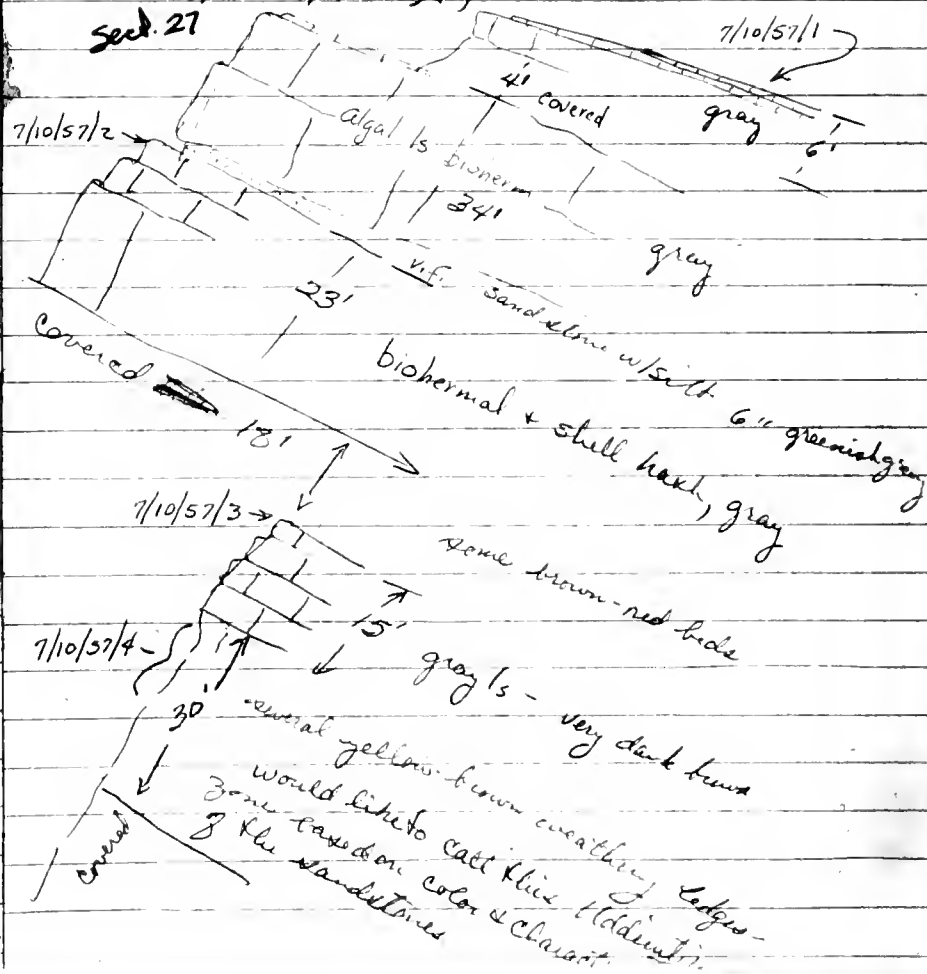 Sect. 27
7/10/57/1
4' covered
gray
6'
7/10/57/2
Algal ls bioherm
34'
gray
v.f. sandstone w/silt 6" greenish gray
23'
biohermal & shell hash, gray
covered
18'
7/10/57/3
some brown-red beds
15'
gray ls - very dark brown
7/10/57/4
30'
several yellow-brown weathering ledges-
would like to call this
zone based on color & charact.
of the sandstones
covered